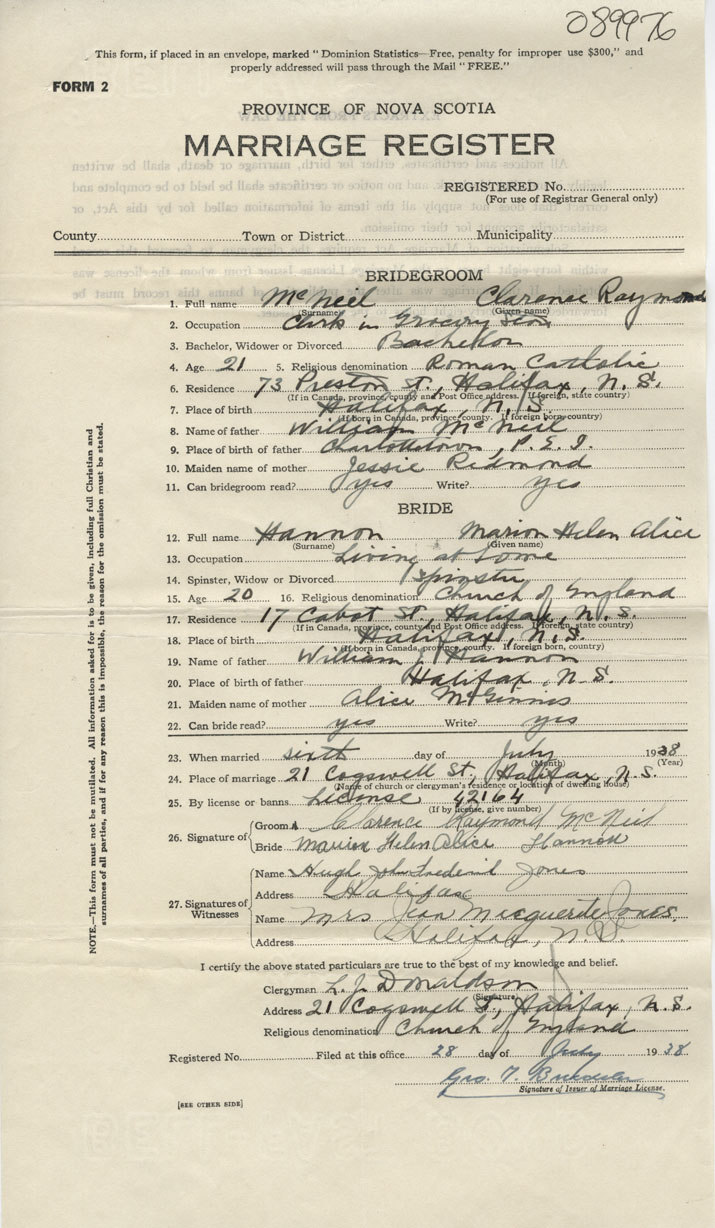 089976
This form, if placed in an envelope, marked "Dominion Statistics—Free, penalty for improper use $300," and
properly addressed will pass through the Mail "FREE."
FORM 2
PROVINCE OF NOVA SCOTIA
MARRIAGE REGISTER
REGISTERED No.
(For use of Registrar General only)
County Town or District Municipality
BRIDEGROOM
1. Full name McNeil Clarence Raymond
(Surname) (Given name)
2. Occupation Clerk in Grocery Store
3. Bachelor, Widower or Divorced Bachelor
4. Age 21 5. Religious denomination Roman Catholic
6. Residence 73 Preston St., Halifax, N.S.
(If in Canada, province, county and Post Office address. If foreign, state country)
7. Place of birth Halifax, N.S.
(If born in Canada, province, county. If foreign born, country)
8. Name of father William McNeil
9. Place of birth of father Charlottetown, P.E.I.
10. Maiden name of mother Jessie Redmond
11. Can bridegroom read? yes Write? yes
BRIDE
12. Full name Hannon Marion Helen Alice
(Surname) (Given name)
13. Occupation Living at home
14. Spinster, Widow or Divorced Spinster
15. Age 20 16. Religious denomination Church of England
17. Residence 17 Cabot St., Halifax, N.S.
(If in Canada, province, county and Post Office address. If foreign, state country)
18. Place of birth Halifax, N.S.
(If born in Canada, province, county. If foreign born, country)
19. Name of father William Hannon
20. Place of birth of father Halifax, N.S.
21. Maiden name of mother Alice McGinnis
22. Can bride read? yes Write? yes
23. When married sixth day of July 1938
(Month) (Year)
24. Place of marriage 21 Cogswell St, Halifax, N.S.
(Name of church or clergyman's residence or location of dwelling house)
25. By license or banns License 42164
(If by license, give number)
26. Signature of Groom Clarence Raymond McNeil
Bride Marion Helen Alice Hannon
27. Signatures of Witnesses
Name Hugh John Frederick Jones
Address Halifax
Name Mrs Jean Jones.
Address Halifax, N.S.
I certify the above stated particulars are true to the best of my knowledge and belief.
Clergyman L. J. Donaldson
(Signature)
Address 21 Cogswell St, Halifax, N.S.
Religious denomination Church of England
Registered No. Filed at this office 28 day of July 1938
Geo. T.
Signature of Issuer of Marriage License.
[SEE OTHER SIDE]
NOTE.—This form must not be mutilated. All information asked for is to be given, including full Christian and
surnames of all parties, and if for any reason this is impossible, the reason for the omission must be stated.